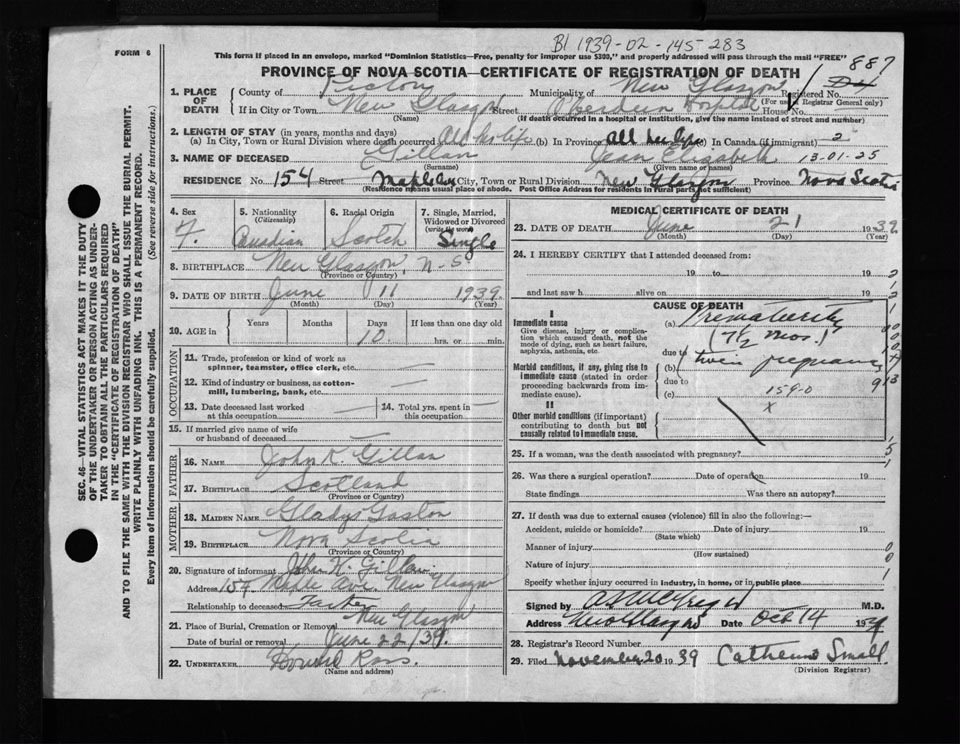 BI 1939-02-145-283
FORM 6
This form if placed in an envelope, marked "Dominion Statistics—Free, penalty for improper use $300," and properly addressed will pass through the mail "FREE"
887
PROVINCE OF NOVA SCOTIA—CERTIFICATE OF REGISTRATION OF DEATH
1. PLACE OF DEATH
County of Pictou Municipality of New Glasgow Registered No.
(For use of Registrar General only)
If in City or Town New Glasgow Street Aberdeen Hospital House No.
(Name) (If death occurred in a hospital or institution, give the name instead of street and number)
2. LENGTH OF STAY (in years, months and days)
(a) In City, Town or Rural Division where death occurred All her life (b) In Province All her life (c) In Canada (if immigrant) 2
3. NAME OF DECEASED Gillan Jean Elizabeth 13-01-25
(Surname) (Given name or names)
RESIDENCE No. 154 Street Maple Ave City, Town or Rural Division New Glasgow Province Nova Scotia
(Residence means usual place of abode. Post Office Address for residents in rural parts not sufficient)
4. Sex F.
5. Nationality (Citizenship) Canadian
6. Racial Origin Scotch
7. Single, Married, Widowed or Divorced (write the word) Single
8. BIRTHPLACE New Glasgow, N-S
(Province or Country)
9. DATE OF BIRTH June 11 1939
(Month) (Day) (Year)
10. AGE in Years Months Days If less than one day old
10 hrs. or min.
OCCUPATION
11. Trade, profession or kind of work as spinner, teamster, office clerk, etc. —
12. Kind of industry or business, as cotton-mill, lumbering, bank, etc. —
13. Date deceased last worked at this occupation — 14. Total yrs. spent in this occupation —
15. If married give name of wife or husband of deceased —
FATHER
16. NAME John K. Gillan
17. BIRTHPLACE Scotland
(Province or Country)
MOTHER
18. MAIDEN NAME Gladys Gaston
19. BIRTHPLACE Nova Scotia
(Province or Country)
20. Signature of informant John K. Gillan
Address 154 Maple Ave. New Glasgow
Relationship to deceased Father
21. Place of Burial, Cremation or Removal New Glasgow
Date of burial or removal June 22/39.
22. UNDERTAKER Ross.
(Name and address)
MEDICAL CERTIFICATE OF DEATH
23. DATE OF DEATH June 21 1939
(Month) (Day) (Year)
24. I HEREBY CERTIFY that I attended deceased from:
19 to 19
and last saw h alive on 19
CAUSE OF DEATH
I
Immediate cause
Give disease, injury or complication which caused death, not the mode of dying, such as heart failure, asphyxia, asthenia, etc.
(a) Prematurity
(7 1/2 mos.)
due to
Morbid conditions, if any, giving rise to immediate cause (stated in order proceeding backwards from immediate cause).
(b) twin pregnancy
due to
(c) 159-0
x
II
Other morbid conditions (if important) contributing to death but not causally related to immediate cause.
25. If a woman, was the death associated with pregnancy?
26. Was there a surgical operation? Date of operation 19
State findings Was there an autopsy?
27. If death was due to external causes (violence) fill in also the following:—
Accident, suicide or homicide? Date of injury 19
(State which)
Manner of injury
(How sustained)
Nature of injury
Specify whether injury occurred in industry, in home, or in public place
Signed by M.D.
Address New Glasgow Date Oct 14 19
28. Registrar's Record Number
29. Filed November 20 1939 Catherine Small
SEC. 46—VITAL STATISTICS ACT MAKES IT THE DUTY
OF THE UNDERTAKER OR PERSON ACTING AS UNDER-
TAKER TO OBTAIN ALL THE PARTICULARS REQUIRED
IN THE "CERTIFICATE OF REGISTRATION OF DEATH"
AND TO FILE THE SAME WITH THE DIVISION REGISTRAR WHO SHALL ISSUE THE BURIAL PERMIT.
WRITE PLAINLY WITH UNFADING INK. THIS IS A PERMANENT RECORD.
Every item of information should be carefully supplied. (See reverse side for instructions.)